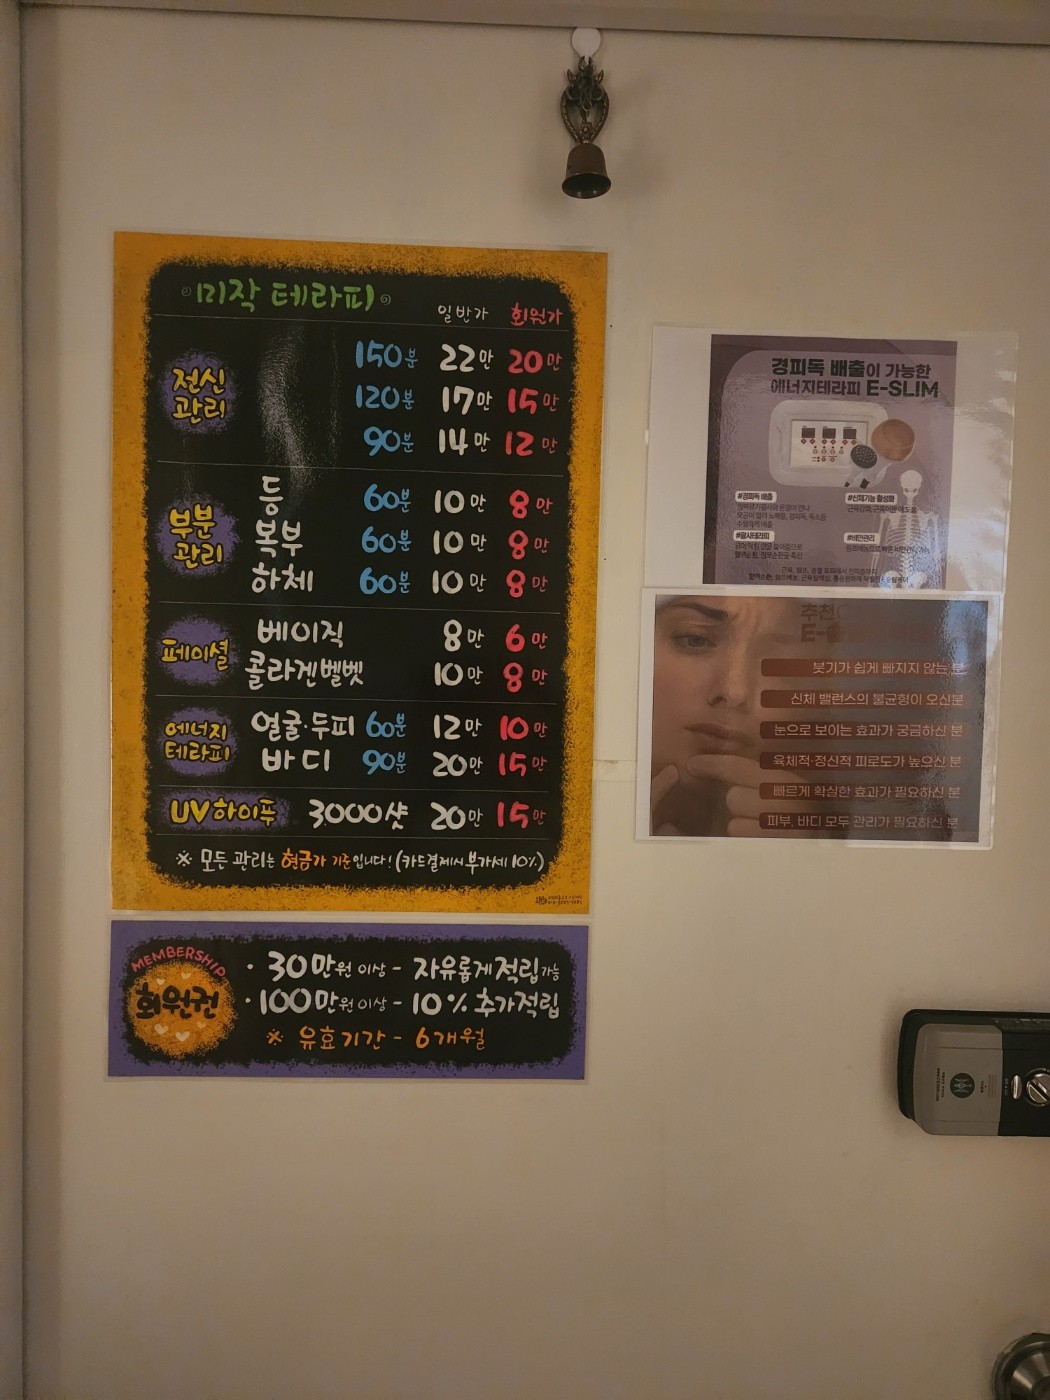 미작 테라피
일반가 회원가
전신 관리
150분 22만 20만
120분 17만 15만
90분 14만 12만
부분 관리
등 60분 10만 8만
복부 60분 10만 8만
하체 60분 10만 8만
페이셜
베이직 8만 6만
콜라겐벨벳 10만 8만
에너지 테라피
얼굴·두피 60분 12만 10만
바디 90분 20만 15만
UV하이푸 3,000샷 20만 15만
※ 모든 관리는 현금가 기준입니다! (카드결제시 부가세 10%)
MEMBERSHIP
회원권
· 30만원 이상 - 자유롭게 적립가능
· 100만원 이상 - 10% 추가적립
※ 유효기간 - 6개월
경피독 배출이 가능한
에너지테라피 E-SLIM
#경피독 배출
#신체기능 활성화
#비만관리
추천
E-
붓기가 쉽게 빠지지 않는 분
신체 밸런스의 불균형이 오신분
눈으로 보이는 효과가 궁금하신 분
육체적·정신적 피로도가 높으신 분
빠르게 확실한 효과가 필요하신 분
피부, 바디 모두 관리가 필요하신 분